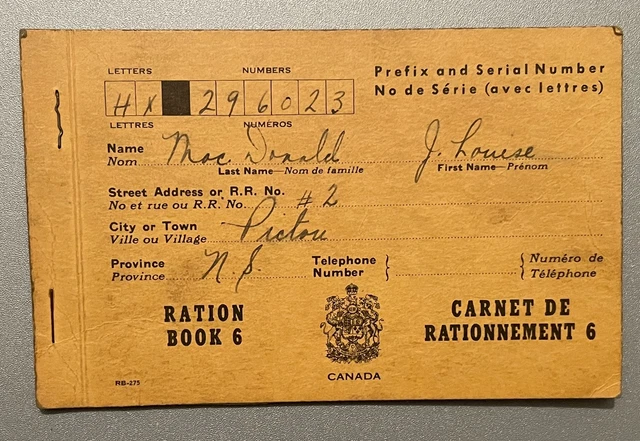 LETTERS NUMBERS
HX 296023
LETTRES NUMÉROS
Prefix and Serial Number
No de Série (avec lettres)
Name Mac Donald J. Louise
Nom Last Name—Nom de famille First Name—Prénom
Street Address or R.R. No. #2
No et rue ou R.R. No.
City or Town Pictou
Ville ou Village
Province N.S. Telephone Numéro de
Province Number Téléphone
RATION CARNET DE
BOOK 6 RATIONNEMENT 6
CANADA
RB-275